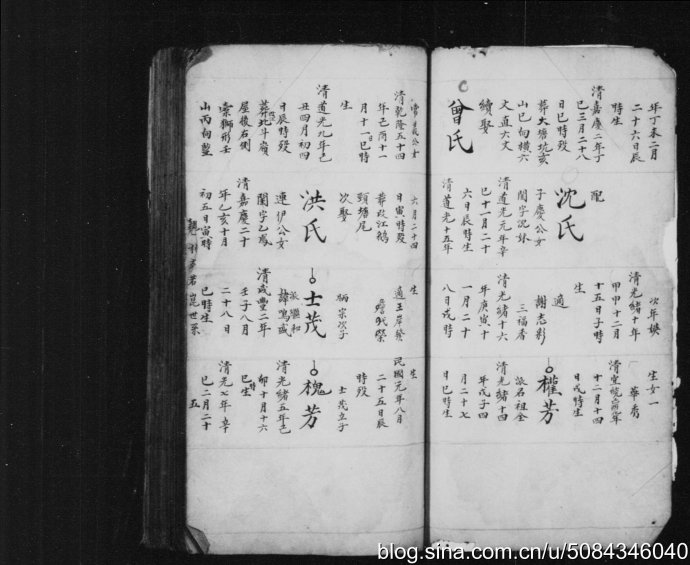 年丁未二月
二十六日辰
時生
清嘉慶二年
巳三月二十八
日巳時歿
葬大塘坑亥
山巳向橫六
文直六文
續娶
曾氏
配
沈氏
子慶公女
閨字況妹
清道光元年辛
巳十一月二十
六日辰時生
清道光十五年
次年娣
清光緒十年
甲申十二月
十五日子時
生
適
謝志彩
三福香
清光緒十六
年庚寅十
一月二十
八日戌時
生女一
華秀
清宣統
十二月十四
日戌時生
權芳
派名祖全
清光緒十四
年戊子四
月二十七
日巳時生
常義公女
清乾隆五十四
年己酉十一
月十一巳時
生
清道光九年己
丑四月初四
日辰時歿
葬北斗嶺
屋後右側
獅形壬
山丙向塟
六月二十四
日寅時歿
江鵝
頸塘尾
次娶
洪氏
連伊公女
閨字乙鳳
清嘉慶二十
年乙亥十月
初五日寅時
生
適王岸發
宗次子
士茂
派繼和
諱鳴盛
清咸豐二年
壬子八月
二十八日
巳時生
生
民國元年八月
二十五日辰
時歿
士茂立子
槐芳
清光緒五年己
卯十月十六
巳時生
清光緒七年辛
巳二月二十
五
blog.sina.com.cn/u/5084346040